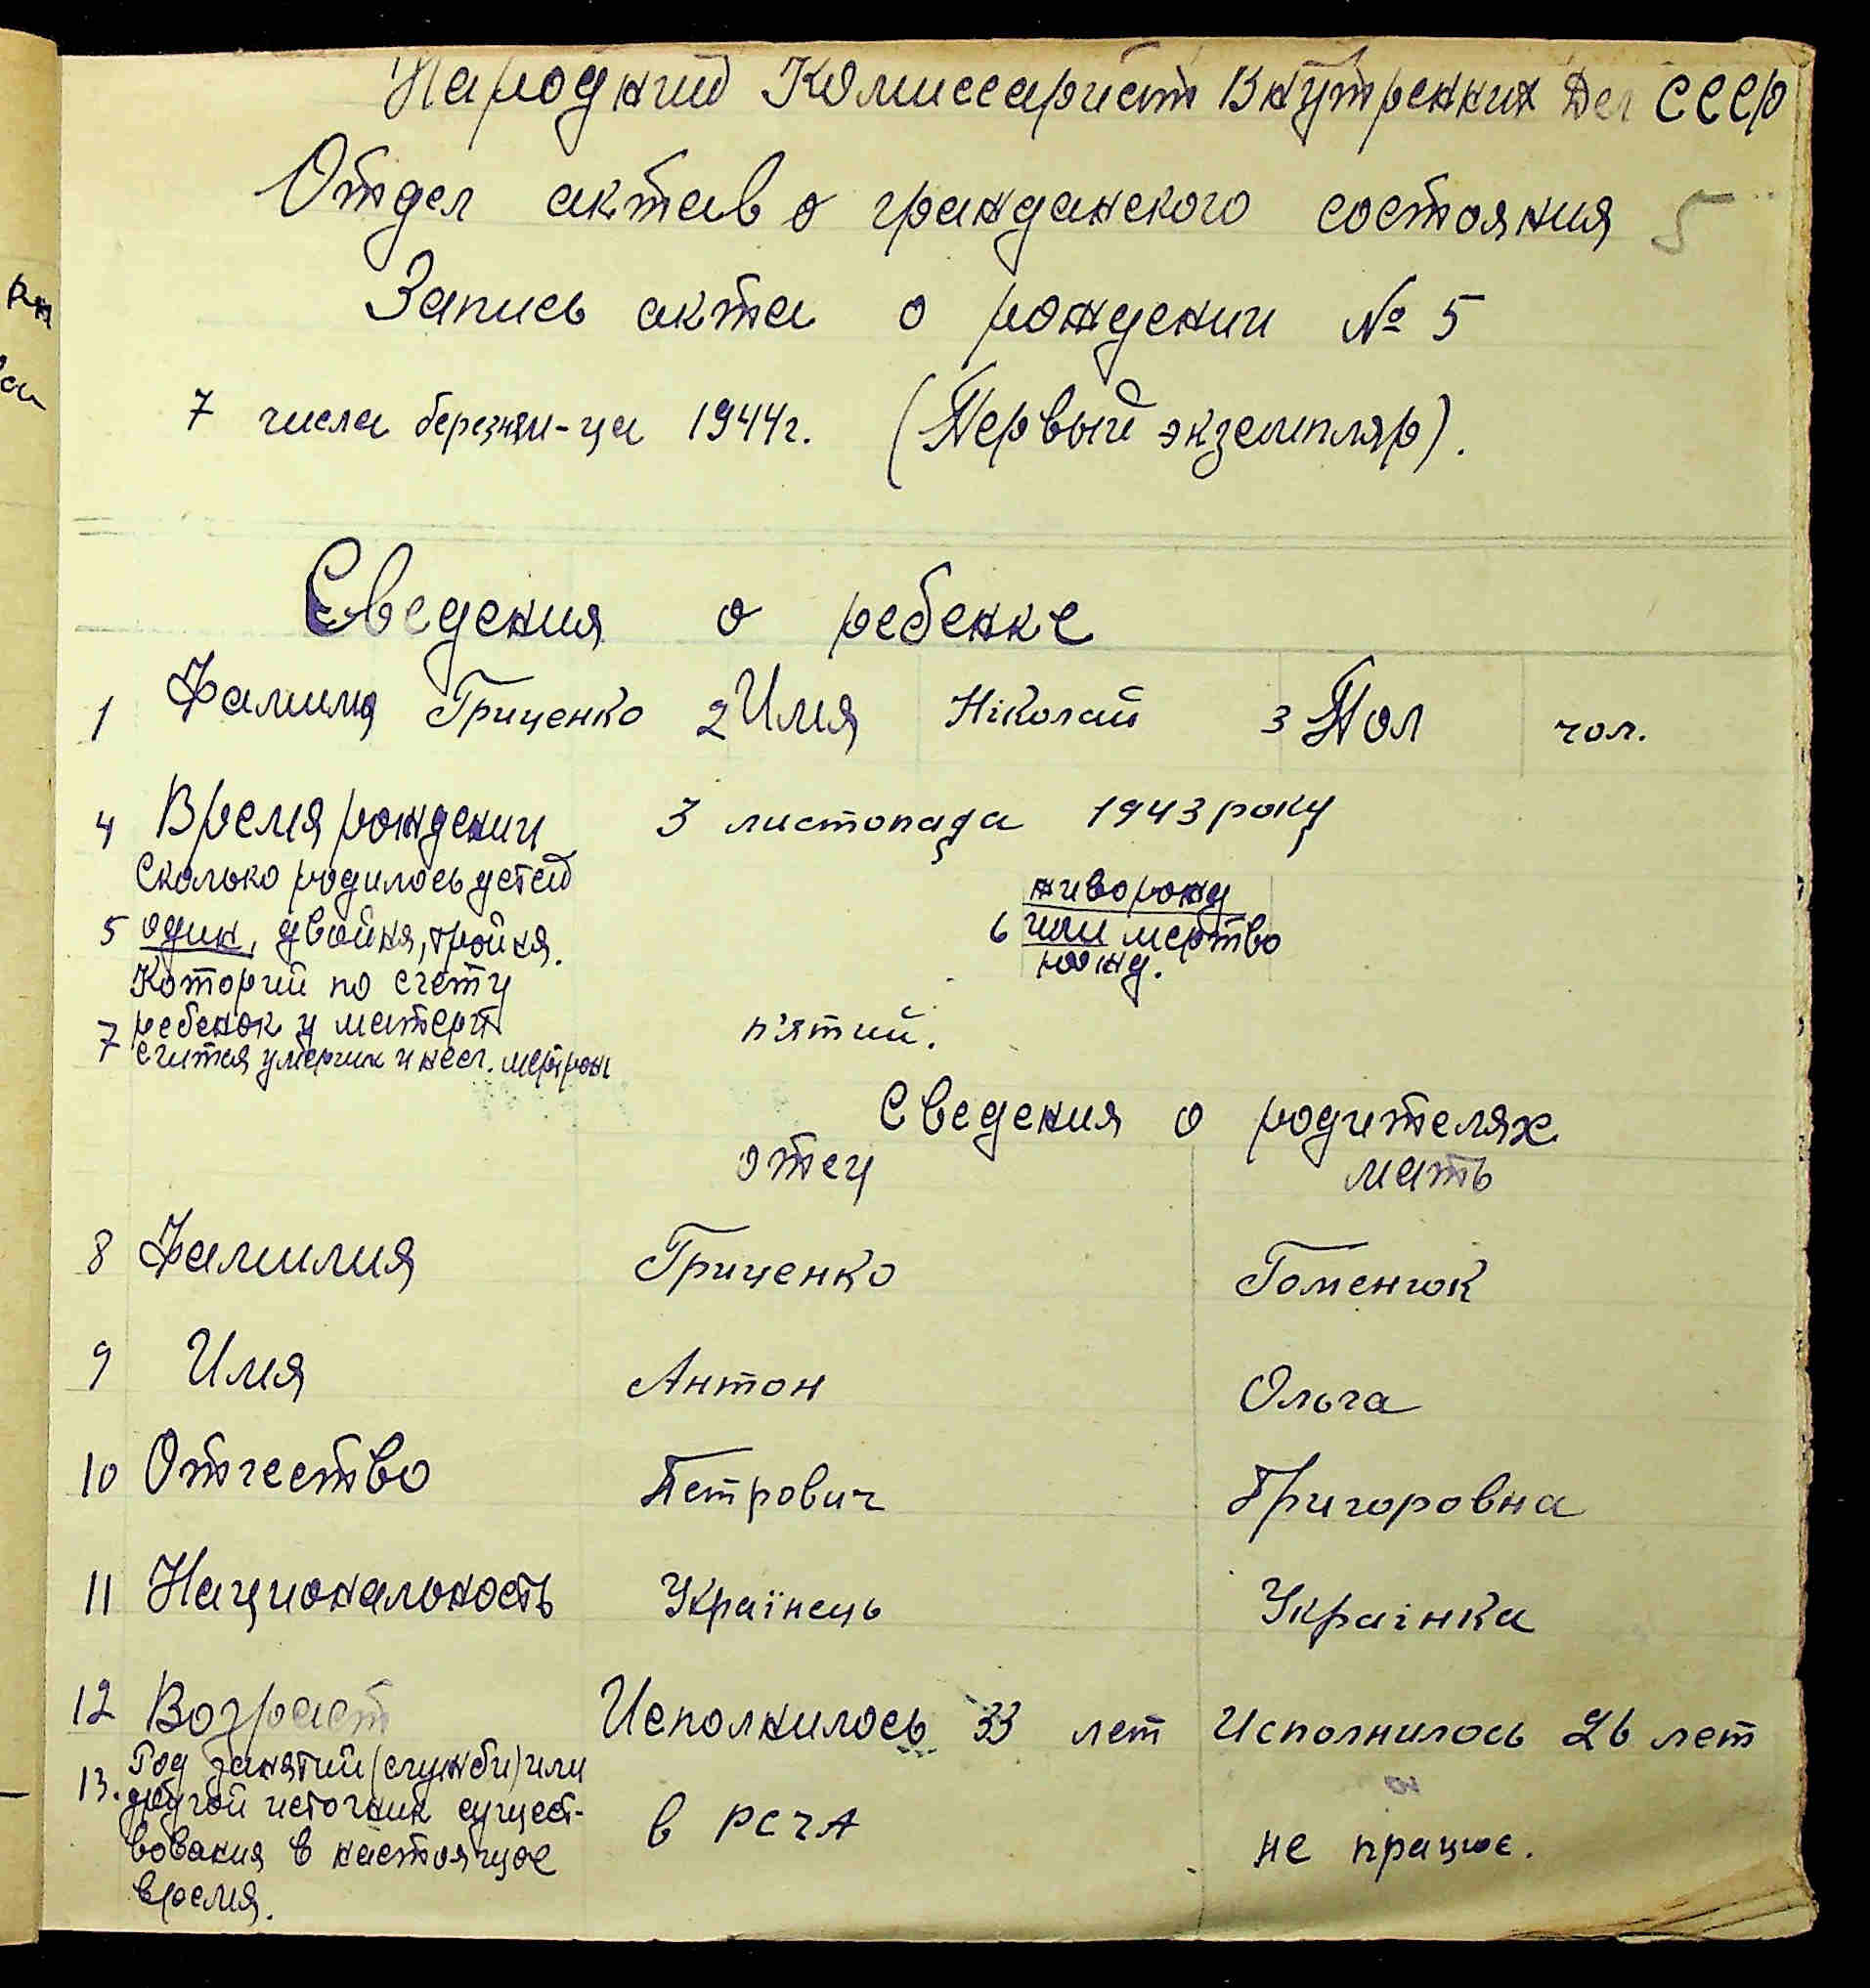 Народний Комиссариат Внутренних Дел СССР
Отдел актав о гражданского состояния 5
Запись акта о рождении № 5
7 числа березня м-ца 1944г. (Первый экземпляр).
Сведения о ребенке
1 Фамилия Гриценко 2 Имя Ніколай 3 Пол чол.
4 Время рождении 3 листопада 1943 року
Сколько родилось детей
5 один, двойня, тройня.
6 живорожд
или мертво
рожд.
Которий по счету
7 ребенок у матери п'ятий.
считая умерших и мертрож
Сведения о родителях
отец мать
8 Фамилия Гриценко Гоменюк
9 Имя Антон Ольга
10 Отчество Петрович Григоровна
11 Национальность Українець Украінка
12 Возраст Исполнилось 33 лет Исполнилось 26 лет
13. Род занятий (служби) или
другой источник сущест-
вования в настоящее
время.
в РСЧА не працює.